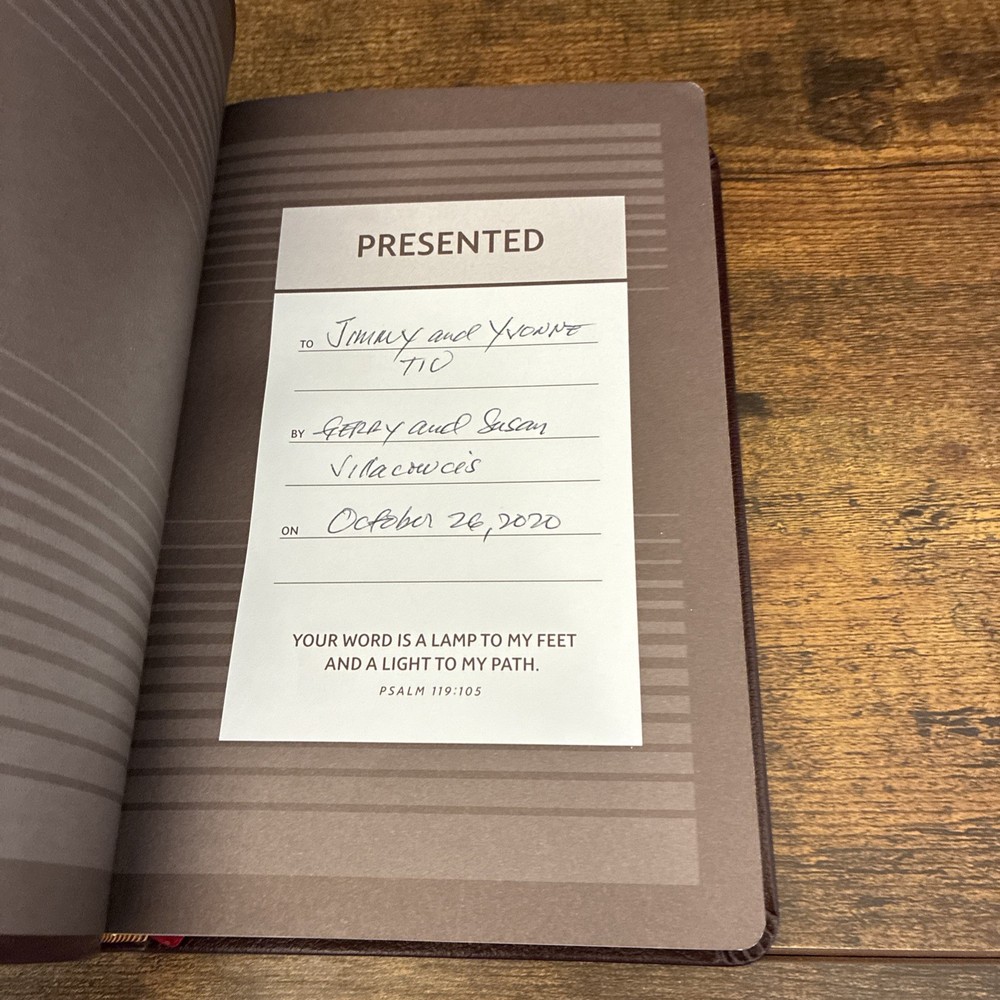 PRESENTED
TO Jimmy and Yvonne
TIU
BY GERRY and Susan
ON October 26, 2020
YOUR WORD IS A LAMP TO MY FEET
AND A LIGHT TO MY PATH.
PSALM 119:105